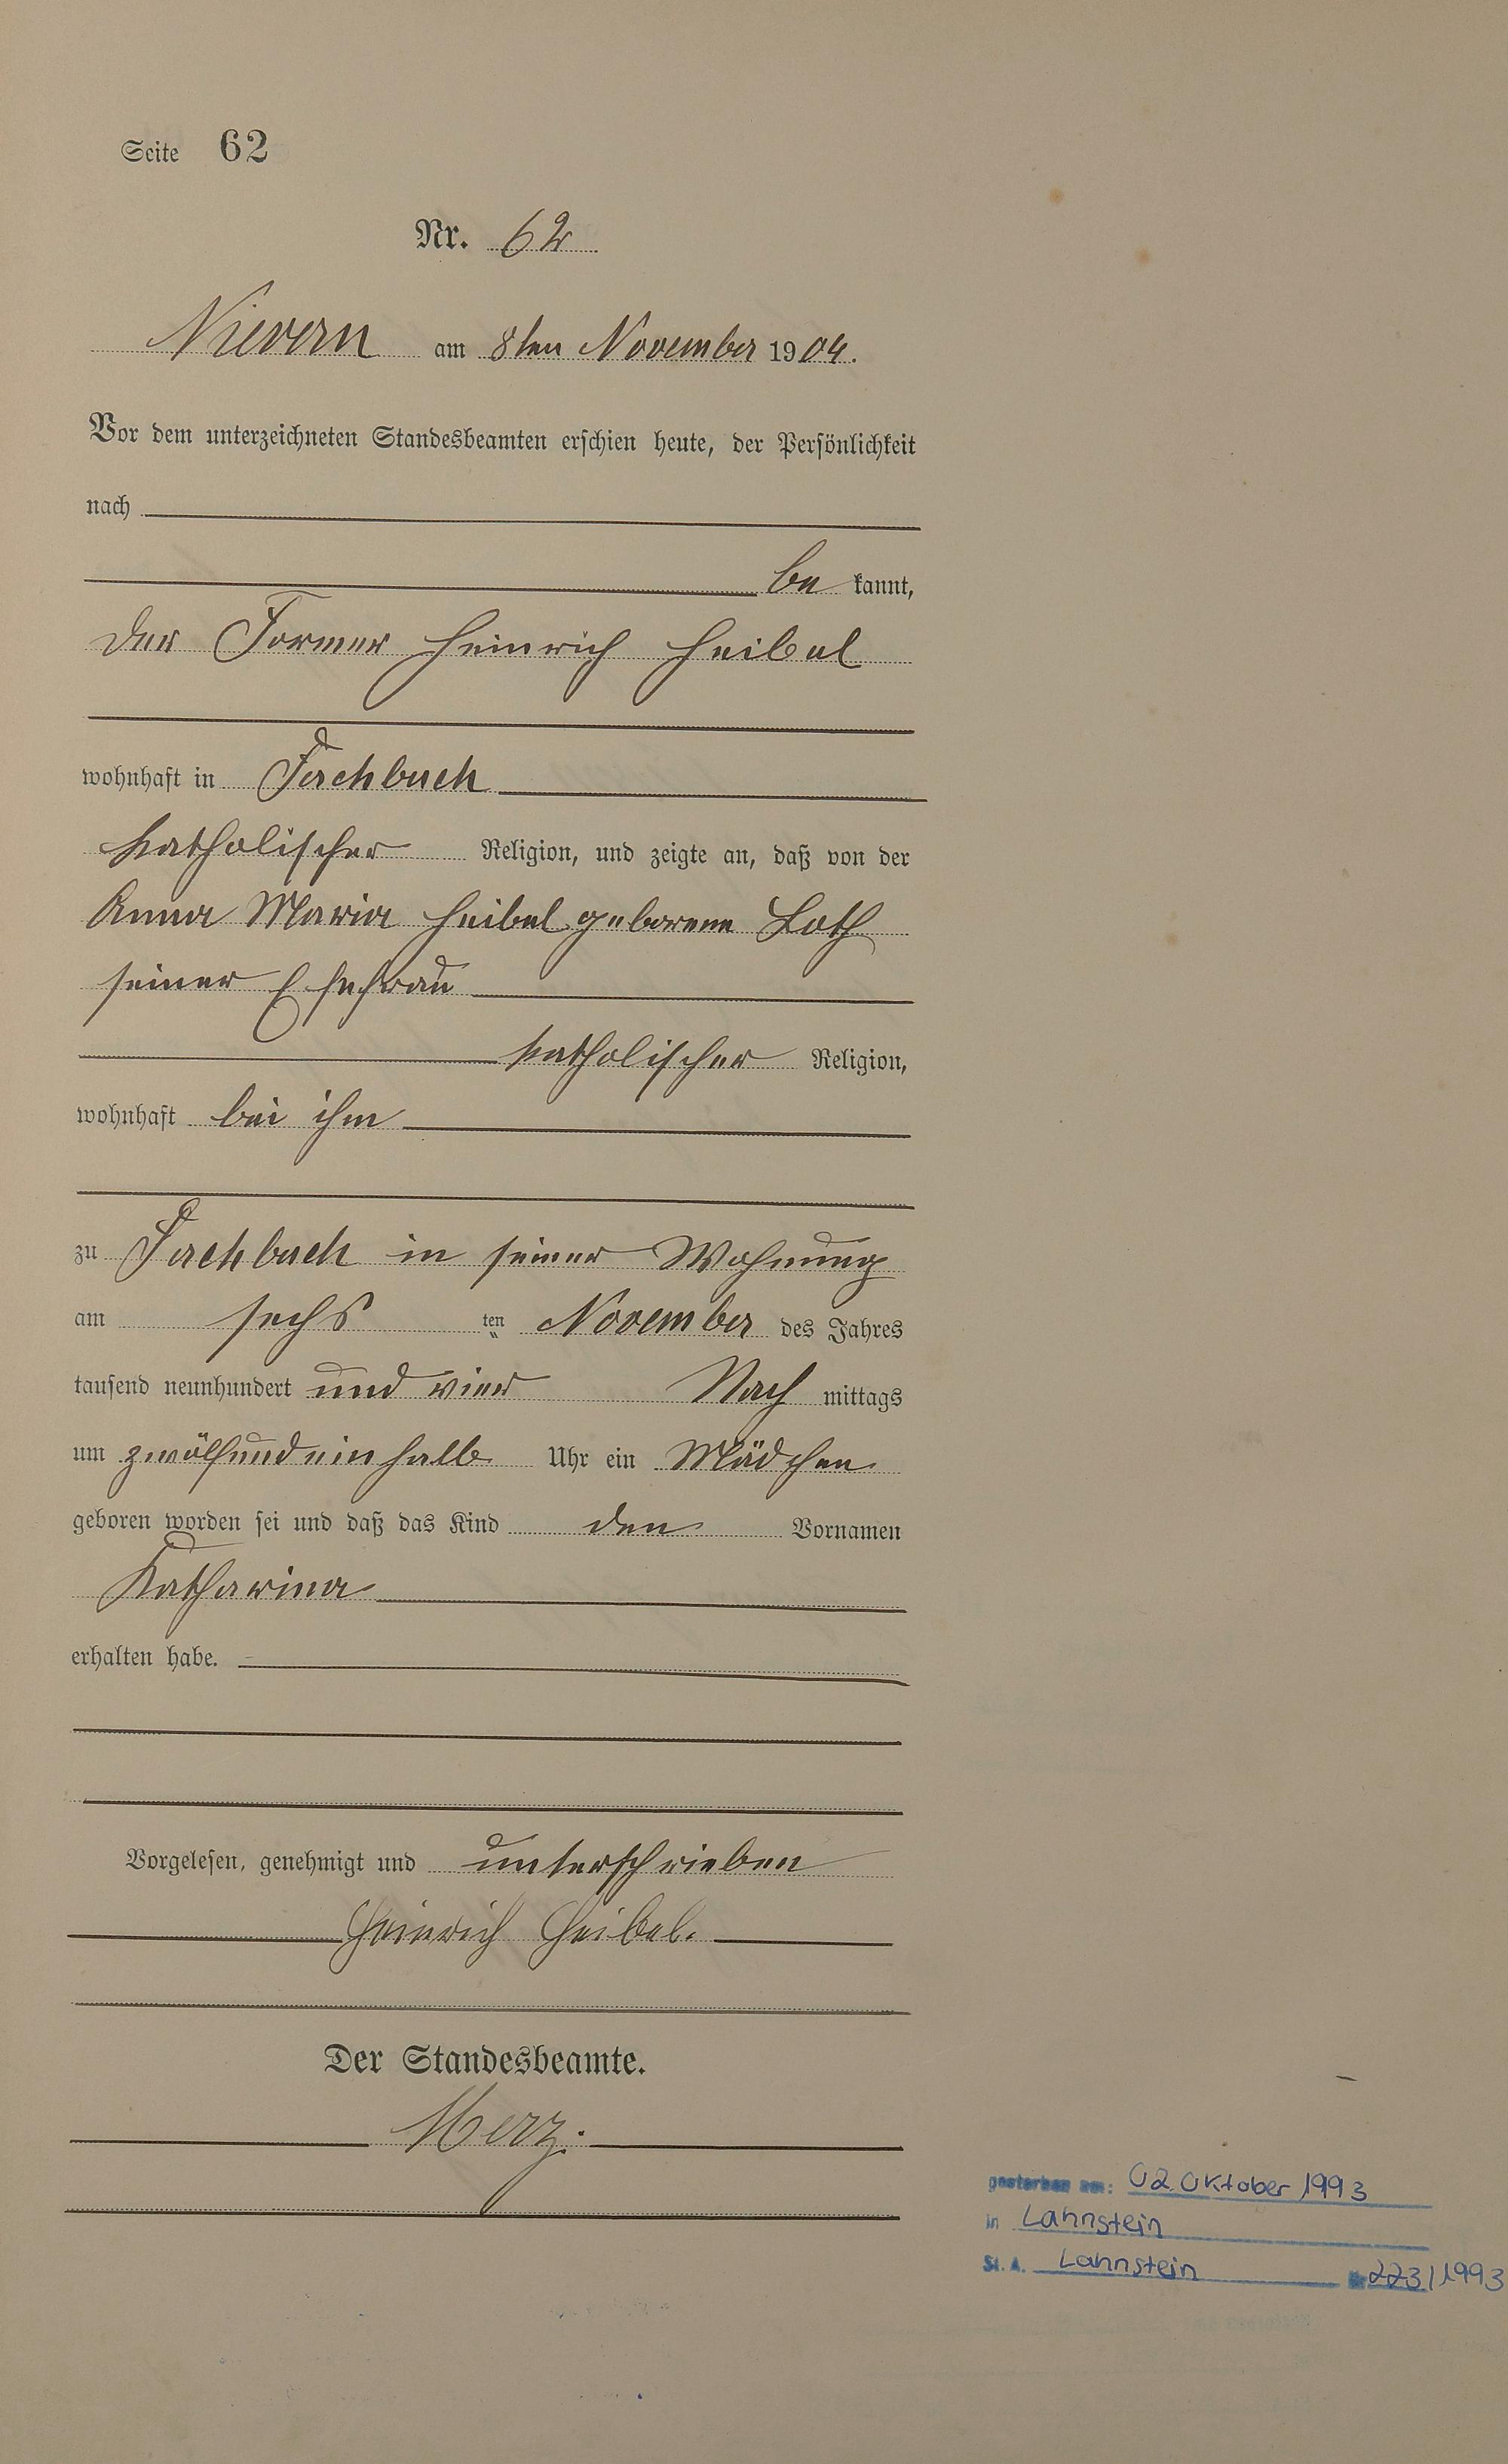 Seite 62
Nr. 62
Nievern am 8ten November 1904.
Vor dem unterzeichneten Standesbeamten erschien heute, der Persönlichkeit
nach
be kannt,
der Former Heinrich Heibel
wohnhaft in Fachbach
katholischer Religion, und zeigte an, daß von der
Anna Maria Heibel geborene Loth
seiner Ehefrau
katholischer Religion,
wohnhaft bei ihm
zu Fachbach in seiner Wohnung
am sechs ten November des Jahres
tausend neunhundert und vier Nach mittags
um zwölfundeinhalb Uhr ein Mädchen
geboren worden sei und daß das Kind den Vornamen
Katharina
erhalten habe.
Vorgelesen, genehmigt und unterschrieben
Heinrich Heibel.
Der Standesbeamte.
Merz.
gestorben am: 02. Oktober 1993
in Lahnstein
St. A. Lahnstein Nr 223/1993